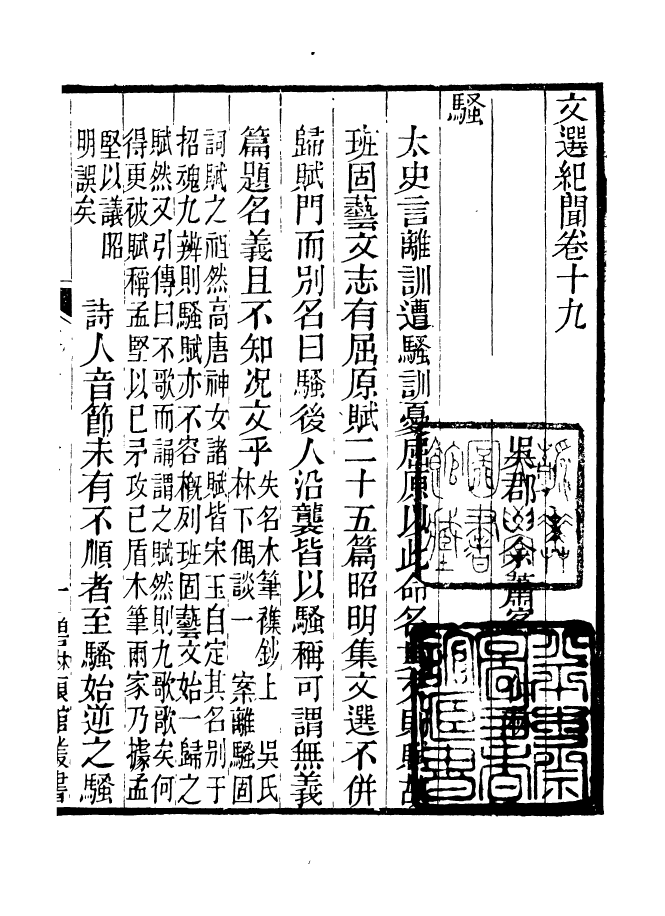 文選紀聞卷十九
吳郡余蕭客
騷
太史言離訓遭騷訓憂屈原以此命名其文則賦故
班固藝文志有屈原賦二十五篇昭明集文選不併
歸賦門而別名曰騷後人沿襲皆以騷稱可謂無義
篇題名義且不知况文乎 失名木筆襍鈔上 吳氏
林下偶談一 案離騷固
詞賦之祖然高唐神女諸賦皆宋玉自定其名別于
招魂九辨則騷賦亦不容槪列班固藝文始一歸之
賦然又引傳曰不歌而誦謂之賦然則九歌歌矣何
得更被賦稱孟堅以己矛攻己盾木筆兩家乃據孟
堅以議昭
明誤矣
詩人音節未有不順者至騷始逆之騷
叢書